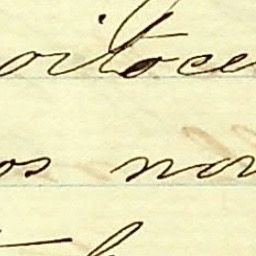 oitoce
os nov